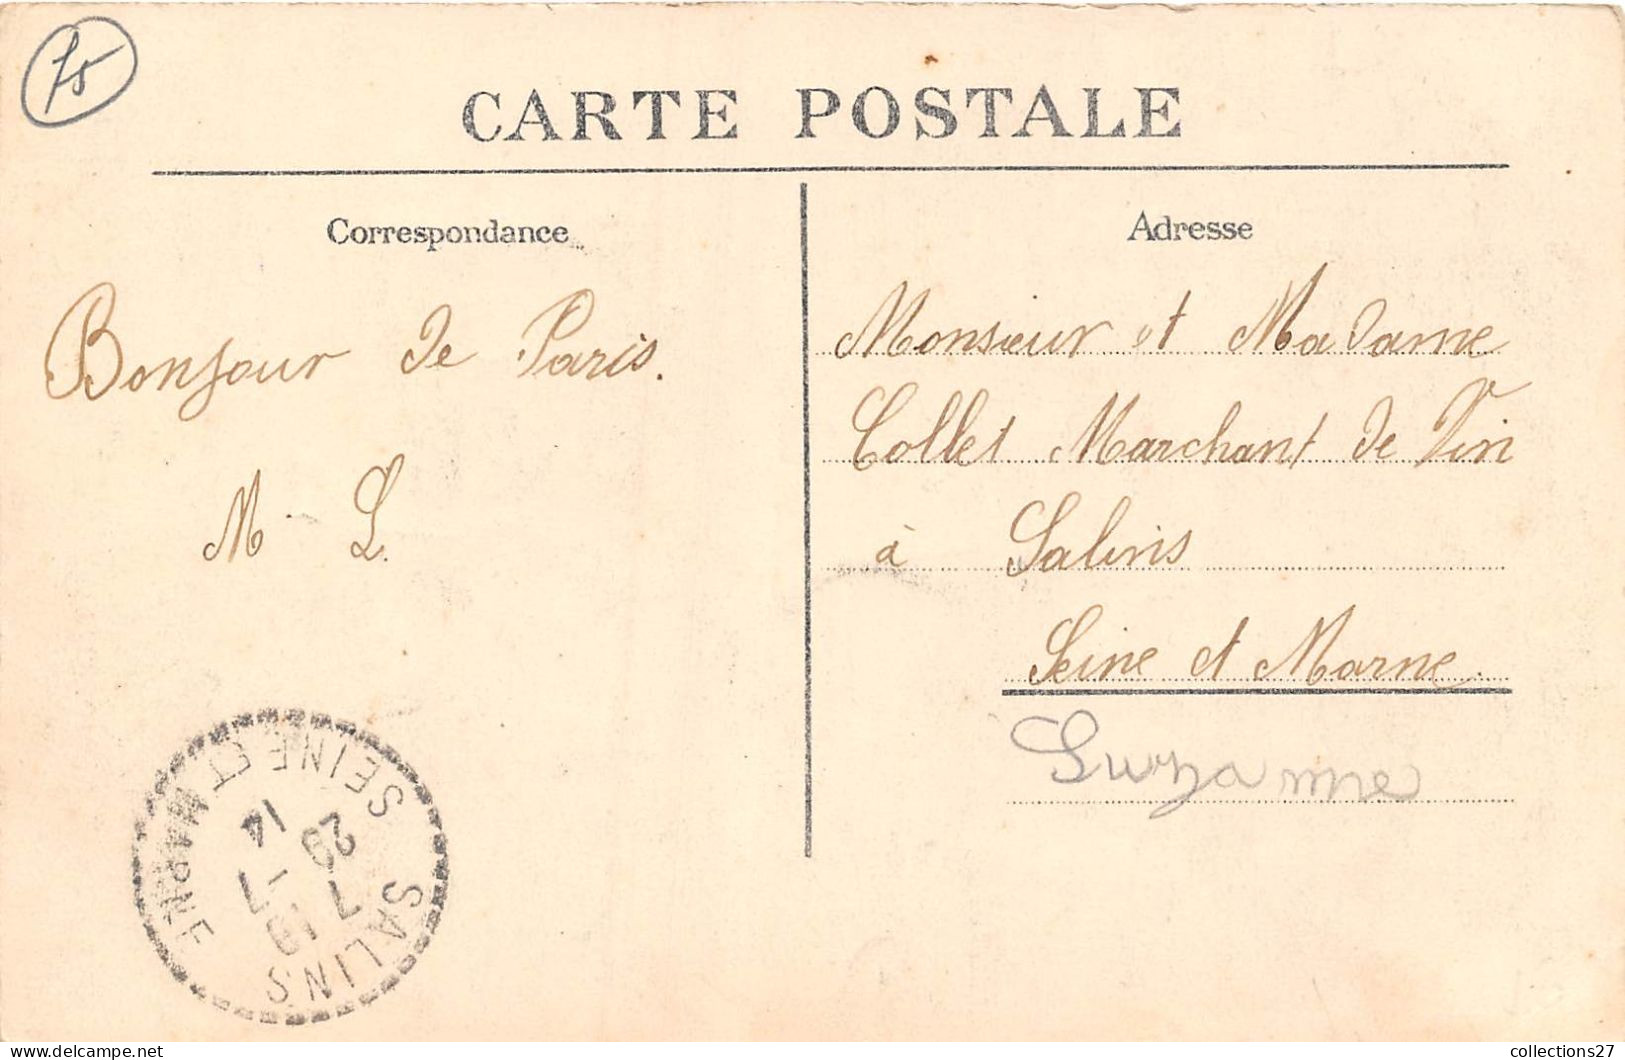 75
CARTE POSTALE
Correspondance
Bonjour de Paris.
M - L.
Adresse
Monsieur et Madame
Collet Marchant de Vin
à Salins
Seine et Marne.
Suzanne
SALINS
SEINE ET MARNE
collections27